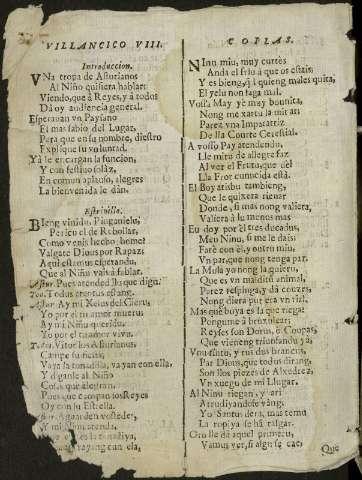 VILLANCICO VIII.
Introduccion.
VNa tropa de Asturianos
Al Niño quisiera hablar:
Viendo, que à Reyes, y à todos
Dà oy audiencia general.
Esperauan vn Paysano
El mas sabio del Lugar,
Para que en su nombre, diestro
Explique su voluntad.
Yà le encargan la funcion,
Y con festiuo solàz,
En comun aplauso, alegres
La bienvenida le dàn.
Estrivillo.
BIeng vinidu, Pinganielu,
Pericu el de Rebollar,
Como venis hecho home!
Valgate Dious por Rapaz!
Aqui estamus esperandu,
Que al Niñu vais à fablar.
Pues atended llo que digu.
Todus atentus estang.
Ay mi Neñu del Cieru,
Yo por ti me amor mueru;
Ay mi Niñu queridu,
Yo por el tu amor vivu.
Todos. Vitor los Asturianus,
Campe su fiesta,
Vaya la tonadilla, vayan con ella,
Y diganle al Niño
Cosas que alegran,
Pues que campan los Reyes
Oy con su Estrella.
Y mi Niñu atenda,
COPLAS.
NInu miu, muy curtès
Anda el friu à que os estais;
Y es bieng, si quieng males quita,
El yelu non faga mal.
Voss'a May yè muy bounita,
Nong me xarta la mirar;
Parez vna Imparatriz
De lla Courte Cerestial.
A vosso Pay atendendu,
Lle miru de allegre faz
Al ver el Frutu, que del
Lla Fror cunucida està.
El Boy atisbu tambieng,
Que le quixera rienar
Donde, si mas nong valiera,
Valiera à lu menos mas
Eu doy por èl tres ducadus,
Meu Ninu, si me le dais;
Farè con èl, y outro miu,
Vn par, que nong tenga par.
La Mula yo nong la quieru,
Que es vn malditu animal,
Parez respinga, y dà couzes,
Nong diera pur era vn rial.
Mas què boya es la que riega?
Pongume à bruxulear;
Reyes son Dorus, è Coupas,
Que vieneng triunfandu ya;
Vnu sirtu, y rus dus brancus,
Par Dious, que todus dirang,
Son llos piezes de Alxedrez,
Vn xuegu de mi Llugar.
Al Ninu riegan, y ari
Arrudiyandose vàng;
Yo Santus dera, mas temu
La ropiya se hà rasgar.
Oro lle dà aquel primeru,
Vamus ver, si algu se cae,
Que